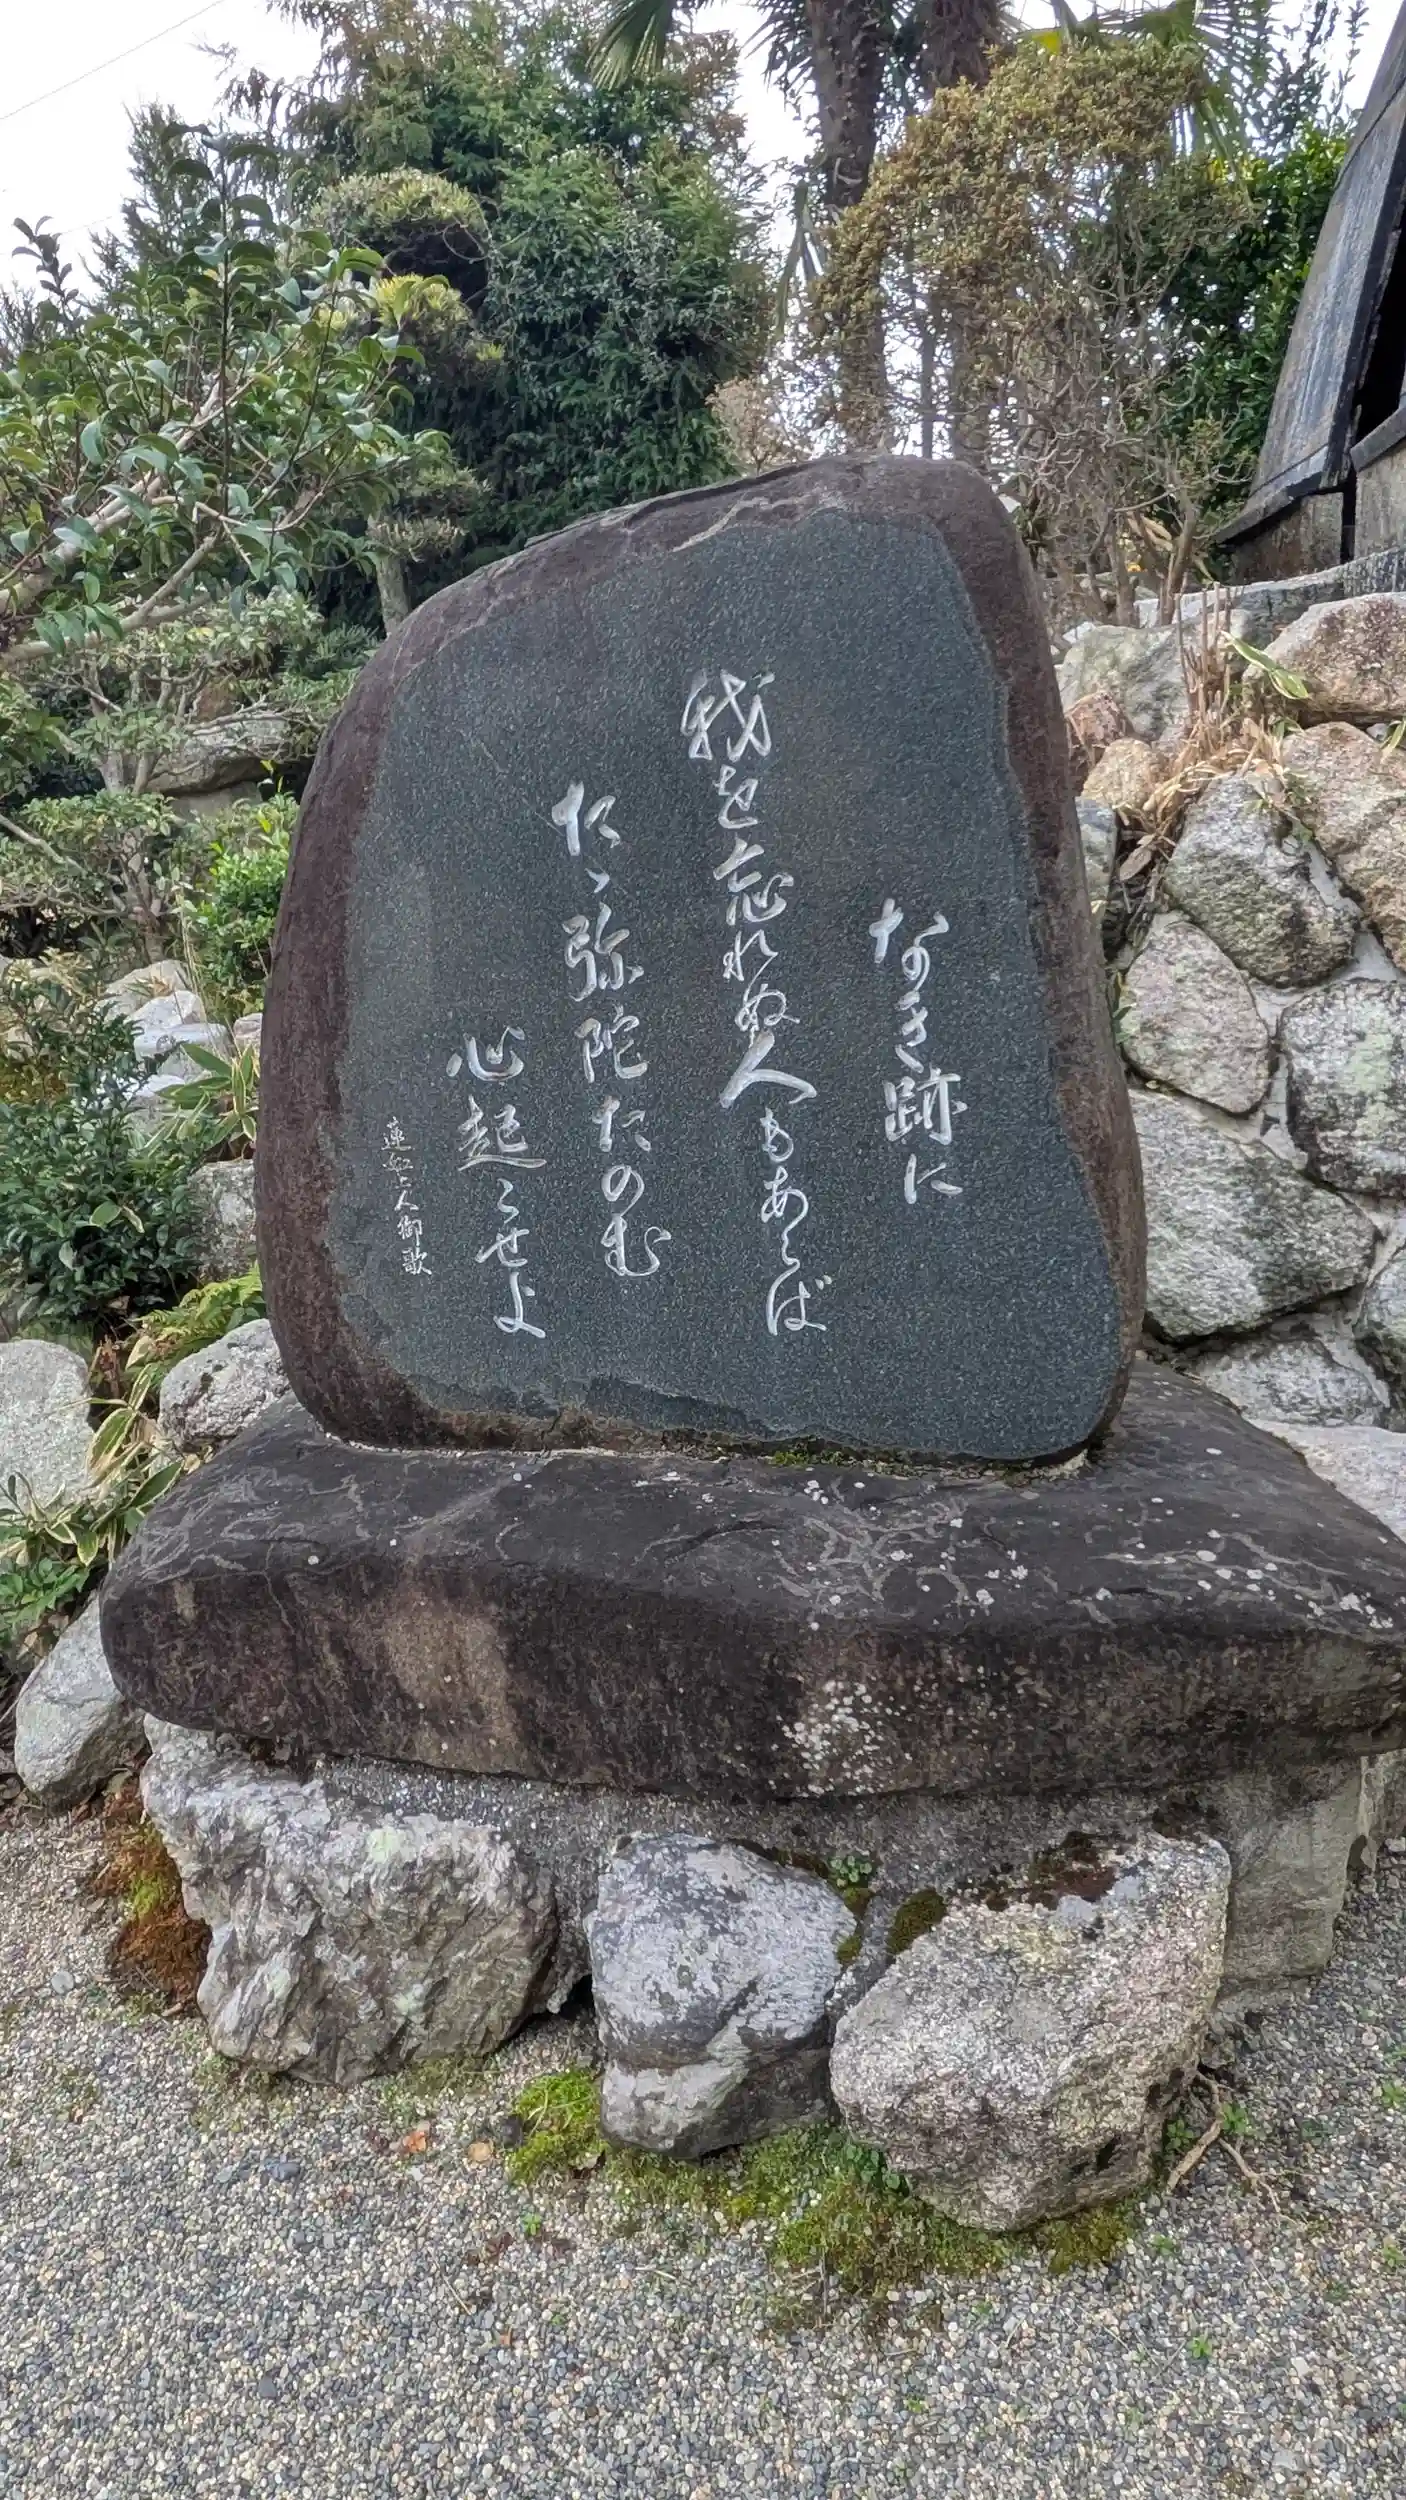 なき跡に
我を忘れぬ人もあらば
たゝ弥陀たのむ
心起こせよ
蓮如上人御歌